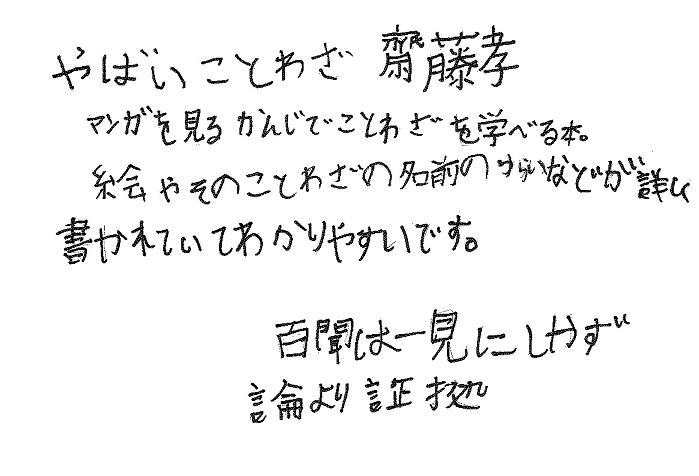 やばいことわざ 齋藤孝
マンガを見るかんじでことわざを学べる本。
絵会やそのことわざの名前のゆらいなどが詳しく
書かれていてわかりやすいです。
百聞は一見にしかず
論より証拠